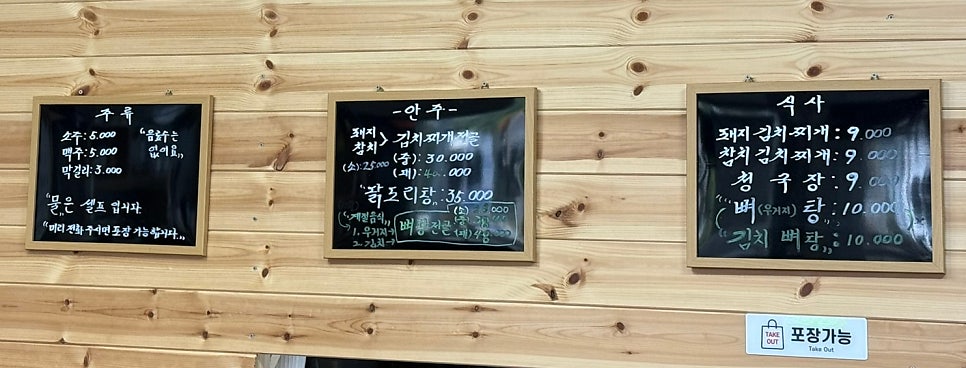 주류
소주: 5.000
맥주: 5.000
막걸리: 3.000
"음료수는
없어요"
"물"은 셀프 입니다.
"미리 전화 주시면 포장 가능합니다."
-안주-
돼지
참치 > 김치찌개전골
(소): 25.000
(중): 30.000
(대): 40.000
"닭도리탕": 35.000
"계절음식"
1. 우거지→
2. 김치→
뼈탕전골
(소)
(중)
(대)
식사
돼지김치찌개: 9.000
참치김치찌개: 9.000
청국장: 9.000
"뼈(우거지)탕": 10.000
"김치뼈탕": 10.000
TAKE OUT
포장가능
Take Out